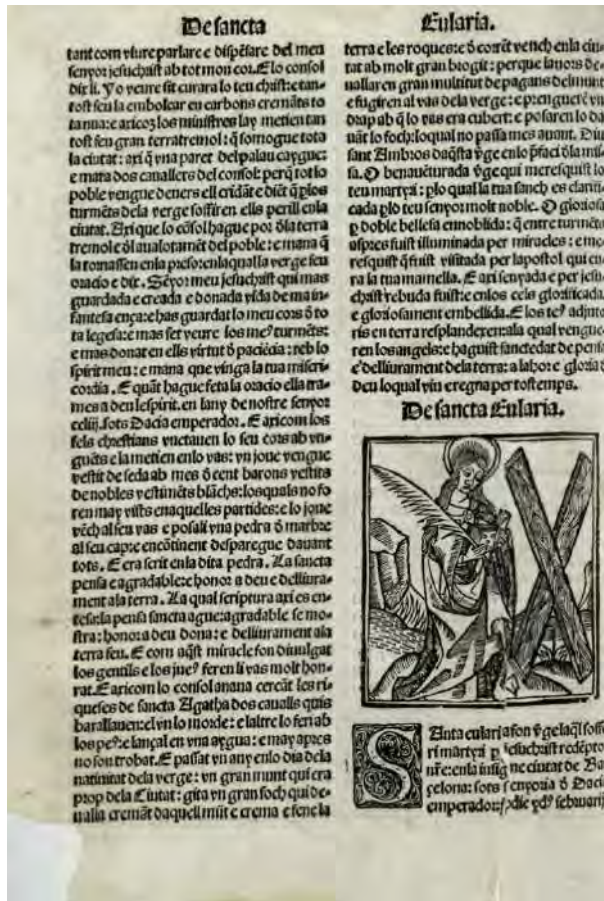 De sancta
tant com viure parlare e dispēsare del meu
senyor jesuchrist ab tot mon cor. E lo consol
dix li. Yo veure si t curara lo teu christ: e tan-
tost feu la embolcar en carbons cremāts to
ta nua: e axi los ministres lay metien tan
tost feu gran terratremol: q̄ somogue tota
la ciutat: axi q̄ vna paret del palau caygue:
e mara dos cauallers del consol: perq̄ tot lo
poble vengue deuers ell cridāt e diēt q̄ plos
turmēts dela verge soffiren ells perill enla
ciutat. Axi que lo cōsol hague por ðla terra
tremol e ðl aualotamēt del poble: e mana q̄
la tornassen enla preso: enla qual la verge feu
oracio e dix. Sēyor meu jesuchrist qui mas
guardada e creada e donada vida de ma in-
fantesa ença: e has guardat lo meu cors ð to
ta legesa: e mas fet veure los meꝰ turmēts:
e mas donat en ells virtut ð paciēcia: reb lo
spirit meu: e mana que vinga la tua miseri-
cordia. E quāt hague feta la oracio ella tra-
mes a deu lespirit. en lany de nostre senyor
ccliij. sots Dacia emperador. E axi com los
fels chrestians vnctauen lo seu cors ab vn-
guēts e la metien enlo vas: vn joue vengue
vestit de seda ab mes ð cent barons vestits
de nobles vestimēts blāchs: los quals no fo
ren may vists en aquelles partides: e lo joue
vēch al seu vas e posa li vna pedra ð marbre
al seu cap: e encōtinent desparegue dauant
tots. E era scrit enla dita pedra. La sancta
pensa e agradable: e honor a deu e delliura-
ment ala terra. La qual scriptura axi es en-
tesa: la pensa sancta ague: agradable se mo-
stra: honor a deu dona: e delliurament ala
terra feu. E com aq̄st miracle fon diuulgat
los gentils e los jueꝰ feren li vas molt hon-
rat. E axi com lo consol anaua cercāt les ri-
queses de sancta Agatha dos caualls quis
barallauen: el vn lo morde: e laltre lo feri ab
los peꝰ: e lançal en vna aygua: e may apres
no fon trobat. E passat vn any enlo dia dela
natiuitat dela verge: vn gran munt qui era
prop dela Ciutat: gita vn gran foch qui de-
ualla cremāt daquell mūt e crema e fene la
Eularia.
terra e les roques: e ð corrēt vench enla ciu-
tat ab molt gran brogit: perque lauors de-
uallaren gran multitut de pagans del munt
e fugiren al vas dela verge: e prengueren vn
drap ab q̄ lo vas era cubert: e posaren lo da
uāt lo foch: lo qual no passa mes auant. Diu
sant Ambros daq̄sta v̄ge enlo p̄faci ðla mis-
sa. O benauēturada v̄ge qui meresquist lo
teu martyri: plo qual la tua sanch es clarifi-
cada plo teu senyor molt noble. O gloriosa
p doble bellesa ennoblida: q̄ entre turmēts
aspres fuist illuminada per miracles: e me-
resquist q̄ fuist visitada per lapostol qui cu-
ra la tua mamella. E axi senyada e per jesu-
christ rebuda fuist: e enlos cels glorificada
e gloriosament embellida. E los teꝰ adjuto
ris en terra resplanderen: ala qual vengue-
ren los angels: e haguist sanctedat de pensa
e delliurament dela terra: a labor e gloria d
Deu lo qual viu e regna per tostemps.
De sancta Eularia.
Santa eularia fon v̄ge la q̄l soffe
ri martyri p jesuchrist redēptor
nr̄e: enla insigne ciutat de Bar
çelona: sots senyoria ð Daci
emperador: die februarij